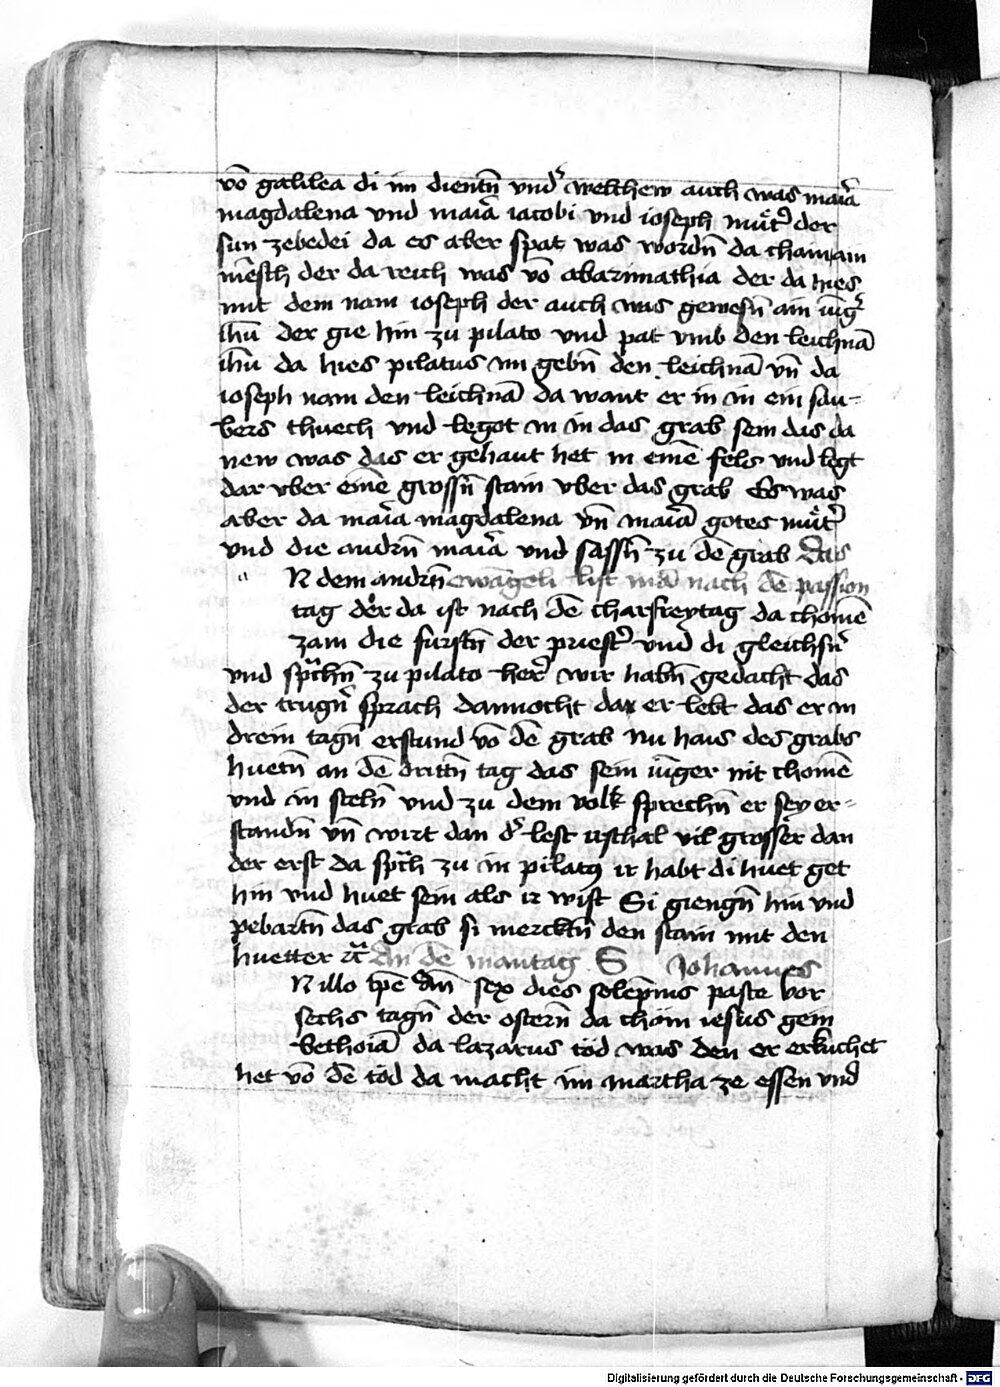 võ galilea di im dientñ vnd' welchew auch was maria
magdalena vnd maria iacobi vnd ioseph muet' der
sun zebedei da es aber spat was wordñ da cham ain
mensch der da reich was võ abarimathia der da hies
mit dem nam ioseph der auch was gewesñ ain iũg'
ihũ der gie hin zu pilato vnd pat vmb den leichnã
ihũ da hies pilatus im gebñ den leichnã vñ da
ioseph nam den leichnã da want er in in ein sau-
bers thuech vnd legot in in das grab sein das da
new was das er gehaut het in einẽ fels vnd legt
dar vber einẽ grossñ stain vber das grab Es was
aber da maria magdalena vñ maria gotes muet'
vnd die andrñ maria vnd sassñ zu dẽ grab Das
N dem andrñ ewangeli list mã nach dẽ passion
tag der da ist nach dẽ charfreytag da chomẽ
zam die furstñ der priest' vnd di gleichsñ'
vnd sprachñ zu pilato her' wir habñ gedacht das
der trugñ' sprach dannocht da er lebt das er in
drein tagñ erstund võ dẽ grab nu hais des grabs
huetñ an dẽ drittñ tag das sein iũger nit chomẽ
vnd in stelñ vnd zu dem volk sprechñ er sey er-
standñ vñ wirt dan d' lest irsthal vil grosser dan
der erst da sprach zu in pilatus ir habt di huet get
hin vnd huet sein als ir wist Si giengñ hin vnd
pebartñ das grab si mercktñ den stain mit den
huetter etc An dẽ mantag S Johannes
N illo tpẽ Añ sex dies solẽpnis pasce vor
sechs tagñ der osterñ da chom iesus gein
bethaniã da lazarus tod was den er erkuchet
het võ dẽ tod da macht im martha ze essen vnd
Digitalisierung gefördert durch die Deutsche Forschungsgemeinschaft - DFG